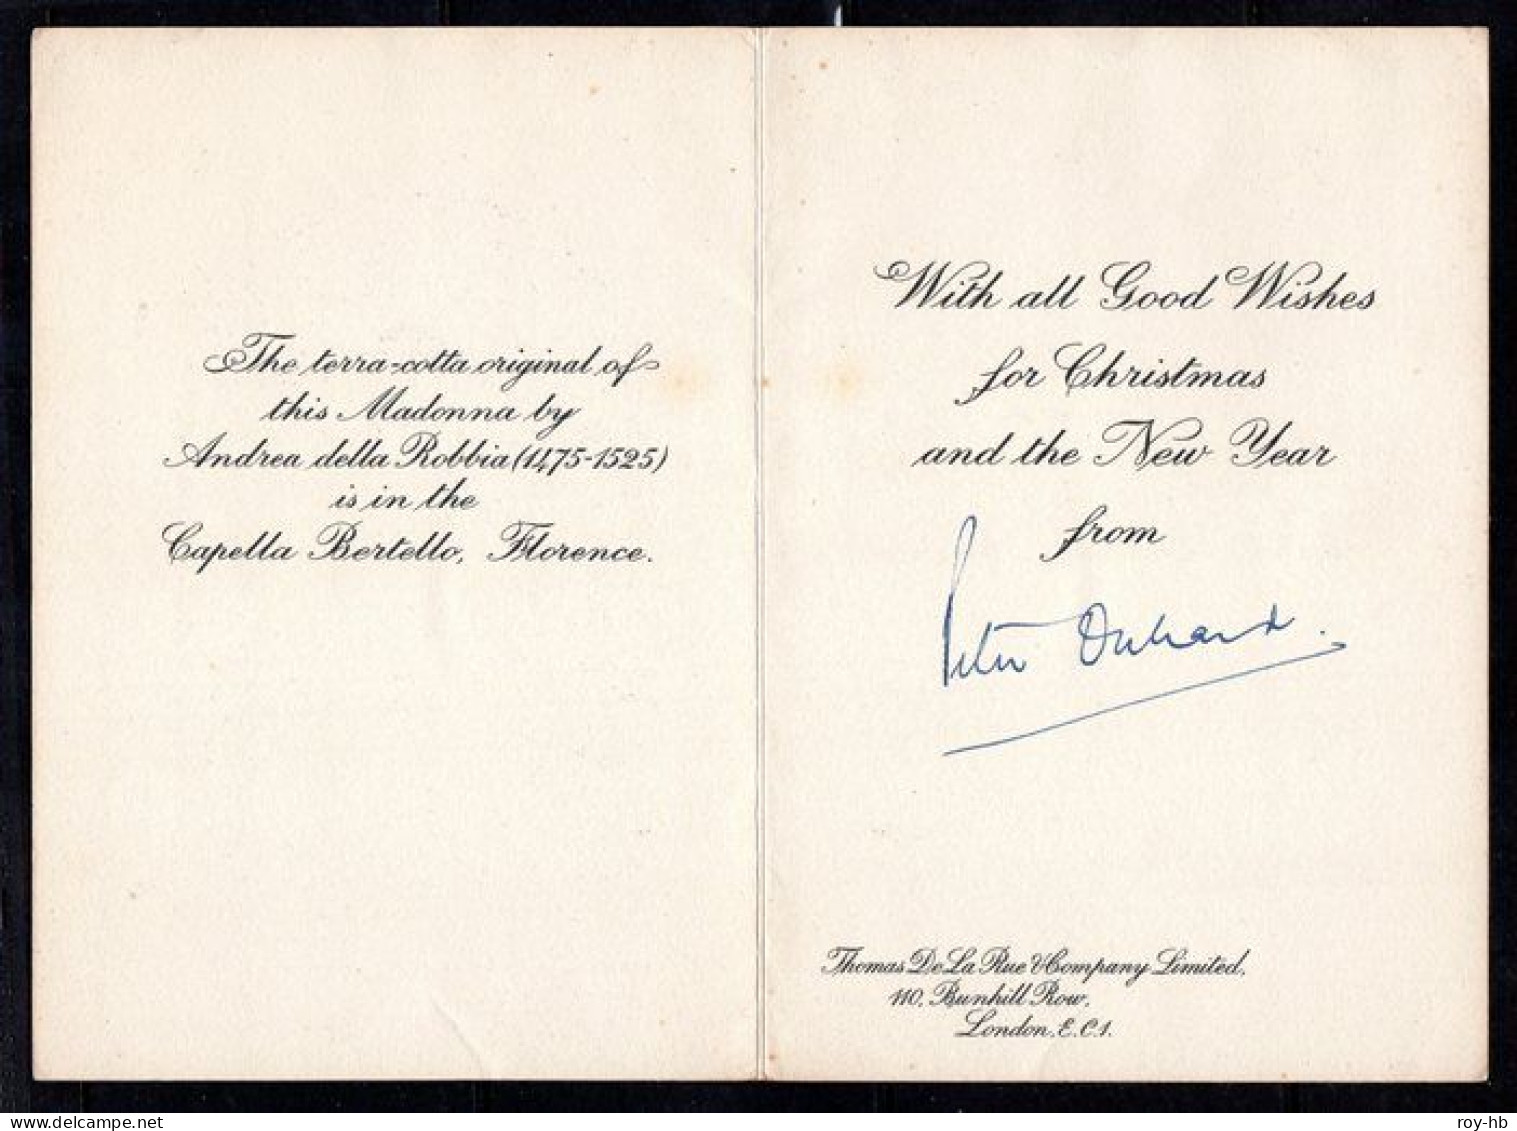 The terra-cotta original of
this Madonna by
Andrea della Robbia (1475-1525)
is in the
Capella Bertello, Florence.
With all Good Wishes
for Christmas
and the New Year
from
Peter
Thomas De La Rue & Company Limited,
110, Bunhill Row,
London, E.C.1.
www.delcampe.net
roy-hb